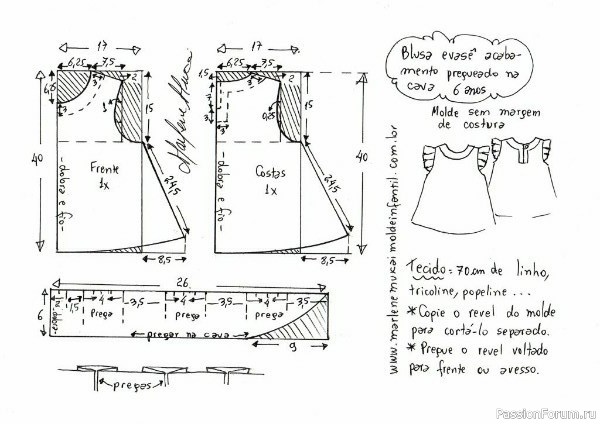 17
6,25
7,5
2
6,5
3
3
1
15
40
Frente
1x
-dobra e fio-
24,5
8,5
Marlene Mukai
17
6,25
7,5
2
1,5
3
7
3
0,25
15
40
Costas
1x
-dobra e fio-
24,5
8,5
Blusa evasê acaba-
mento pregueado na
cava 6 anos
Molde sem margem
de costura
www.marlenemukai.moldeinfantil.com.br
Tecido = 70cm de linho,
tricoline, popeline...
* Copie o revel do molde
para cortá-lo separado.
* Pregue o revel voltado
para frente ou avesso.
26
6
1,5
4
3,5
4
3,5
4
3,5
prega
prega
prega
pregar na cava
9
pregas
PassionForum.ru